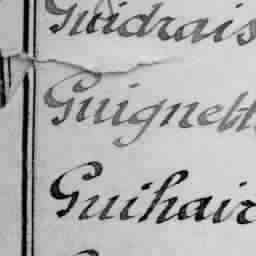 Guidrais
Guignett
Guihair